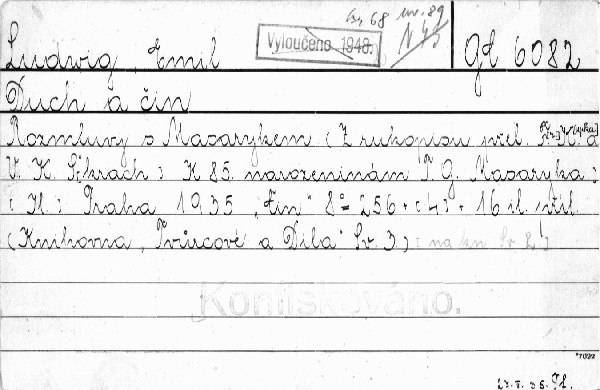 Ludwig, Emil
Vyloučeno 1948.
Gd 6082
Duch a čin
Rozmluvy s Masarykem (Z rukopisu přel. a
V. K. Škrach) K 85. narozeninám T. G. Masaryka)
(Il.) Praha 1935 „Čin" 8° 256 + (4) + 16 il. příl.
(Knihovna „Tvůrcové a Díla" Sv. 3.) [na kn Sv 2.]
Konfiskováno.
*7022